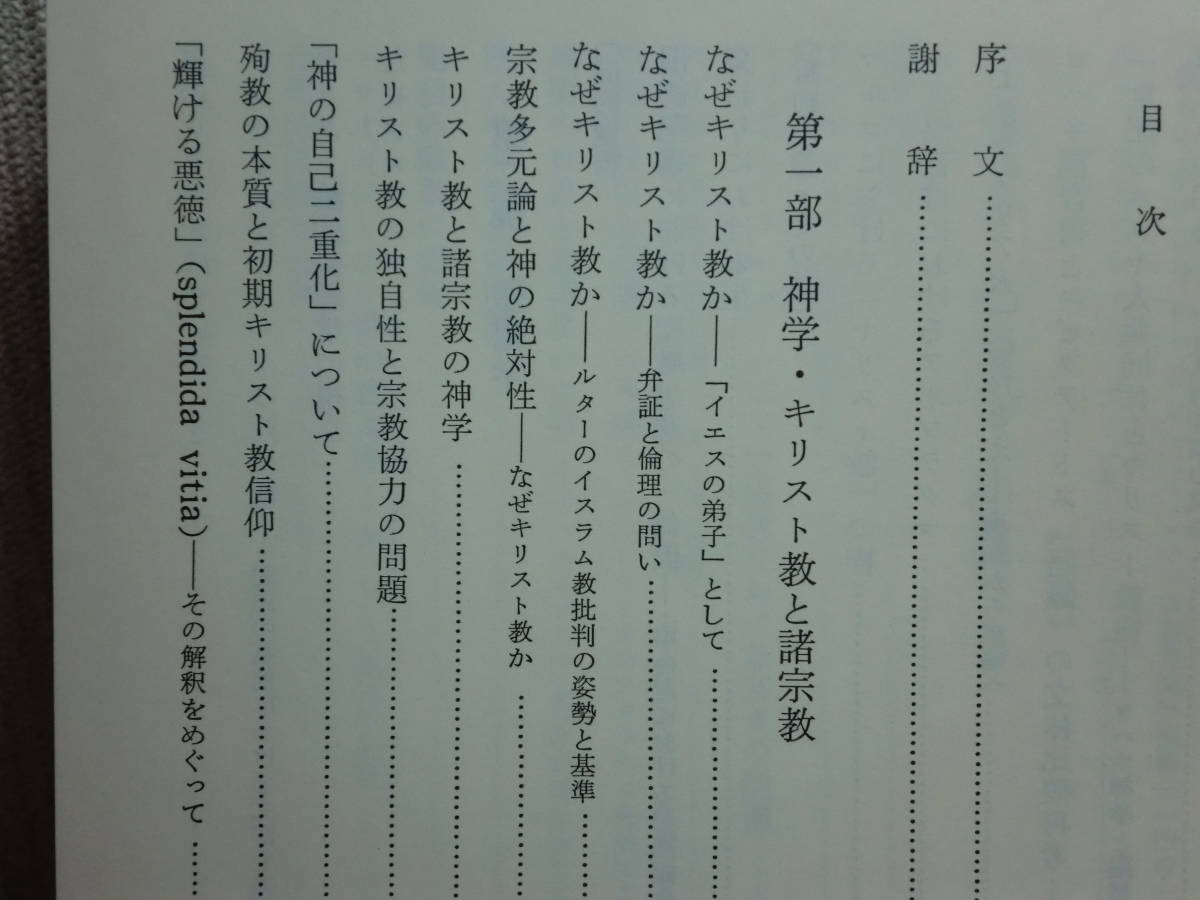 目次
序文……………………
謝辞……………………
第一部 神学・キリスト教と諸宗教
なぜキリスト教か――「イエスの弟子」として……………
なぜキリスト教か――弁証と倫理の問い……………
なぜキリスト教か――ルターのイスラム教批判の姿勢と基準……
宗教多元論と神の絶対性――なぜキリスト教か……………
キリスト教と諸宗教の神学……………
キリスト教の独自性と宗教協力の問題……………
「神の自己二重化」について……………
殉教の本質と初期キリスト教信仰……………
「輝ける悪徳」(splendida vitia)――その解釈をめぐって……